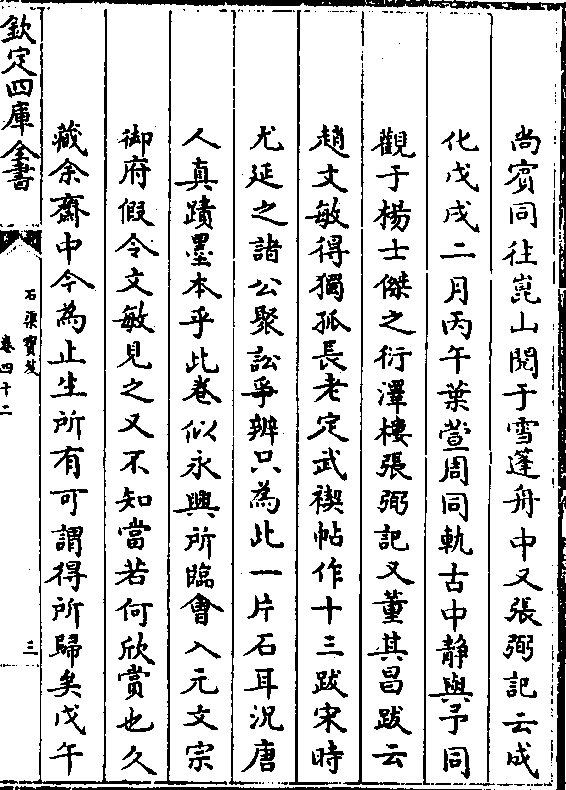 尚賓同往崑山閱于雪蓬舟中又張弼記云成
化戊戌二月丙午葉萱周同軌古中靜與予同
觀于楊士傑之衍澤樓張弼記又董其昌跋云
趙文敏得獨孤長老定武禊帖作十三跋宋時
尤延之諸公聚訟爭辨只為此一片石耳況唐
人真蹟墨本乎此卷似永興所臨曾入元文宗
御府假令文敏見之又不知當若何欣賞也久
藏余齋中今為止生所有可謂得所歸矣戊午
欽定四庫全書
石渠寶笈
卷四十二
三